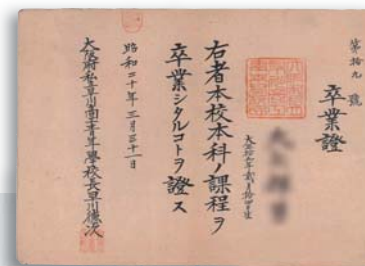 第拾九號
卒業證
右者本校本科ノ課程ヲ
卒業シタルコトヲ證ス
昭和二十年三月三十一日
大阪府私立早川商工青年學校長早川德次